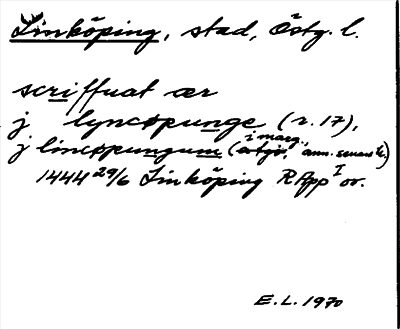 Linköping, stad, Östg. l.
scriffuat ær
j lyncøpunge (r. 17),
j lincøpungum (i marg., ann. senare h.)
1444 29/6 Linköping RApp I or.
E.L. 1970